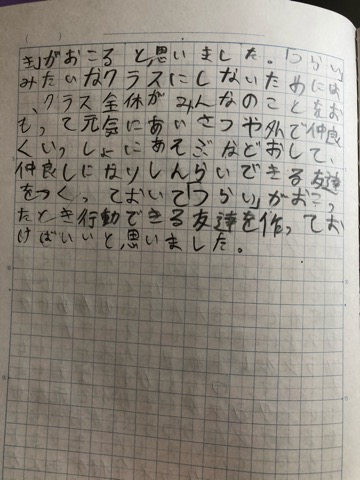 」がおこると思いました。「つらい」
みたいなクラスにしないためには
、クラス全休がみんなのことをお
もって元気にあいさつや外で仲良
くいっしょにあそごなどおして、
仲良しになりしんらいできる友達
をつくっておいて「つらい」がおこっ
たとき行動できる友達を作ってお
けばいいと思いました。